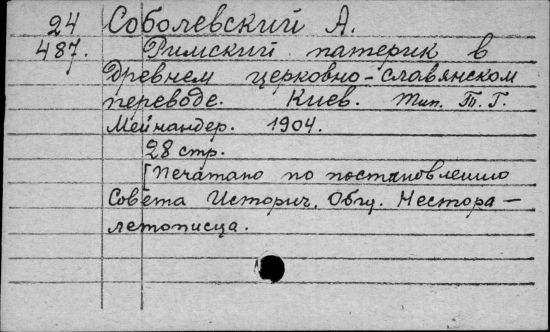 24 Соболевский А.
487. Римский патерик в
древнем церковно-славянском
переводе. Киев. Тип. Т. Г.
Мейнандер. 1904.
28 стр.
[Печатано по постановлению
Совета Историч. Общ. Нестора-
летописца.